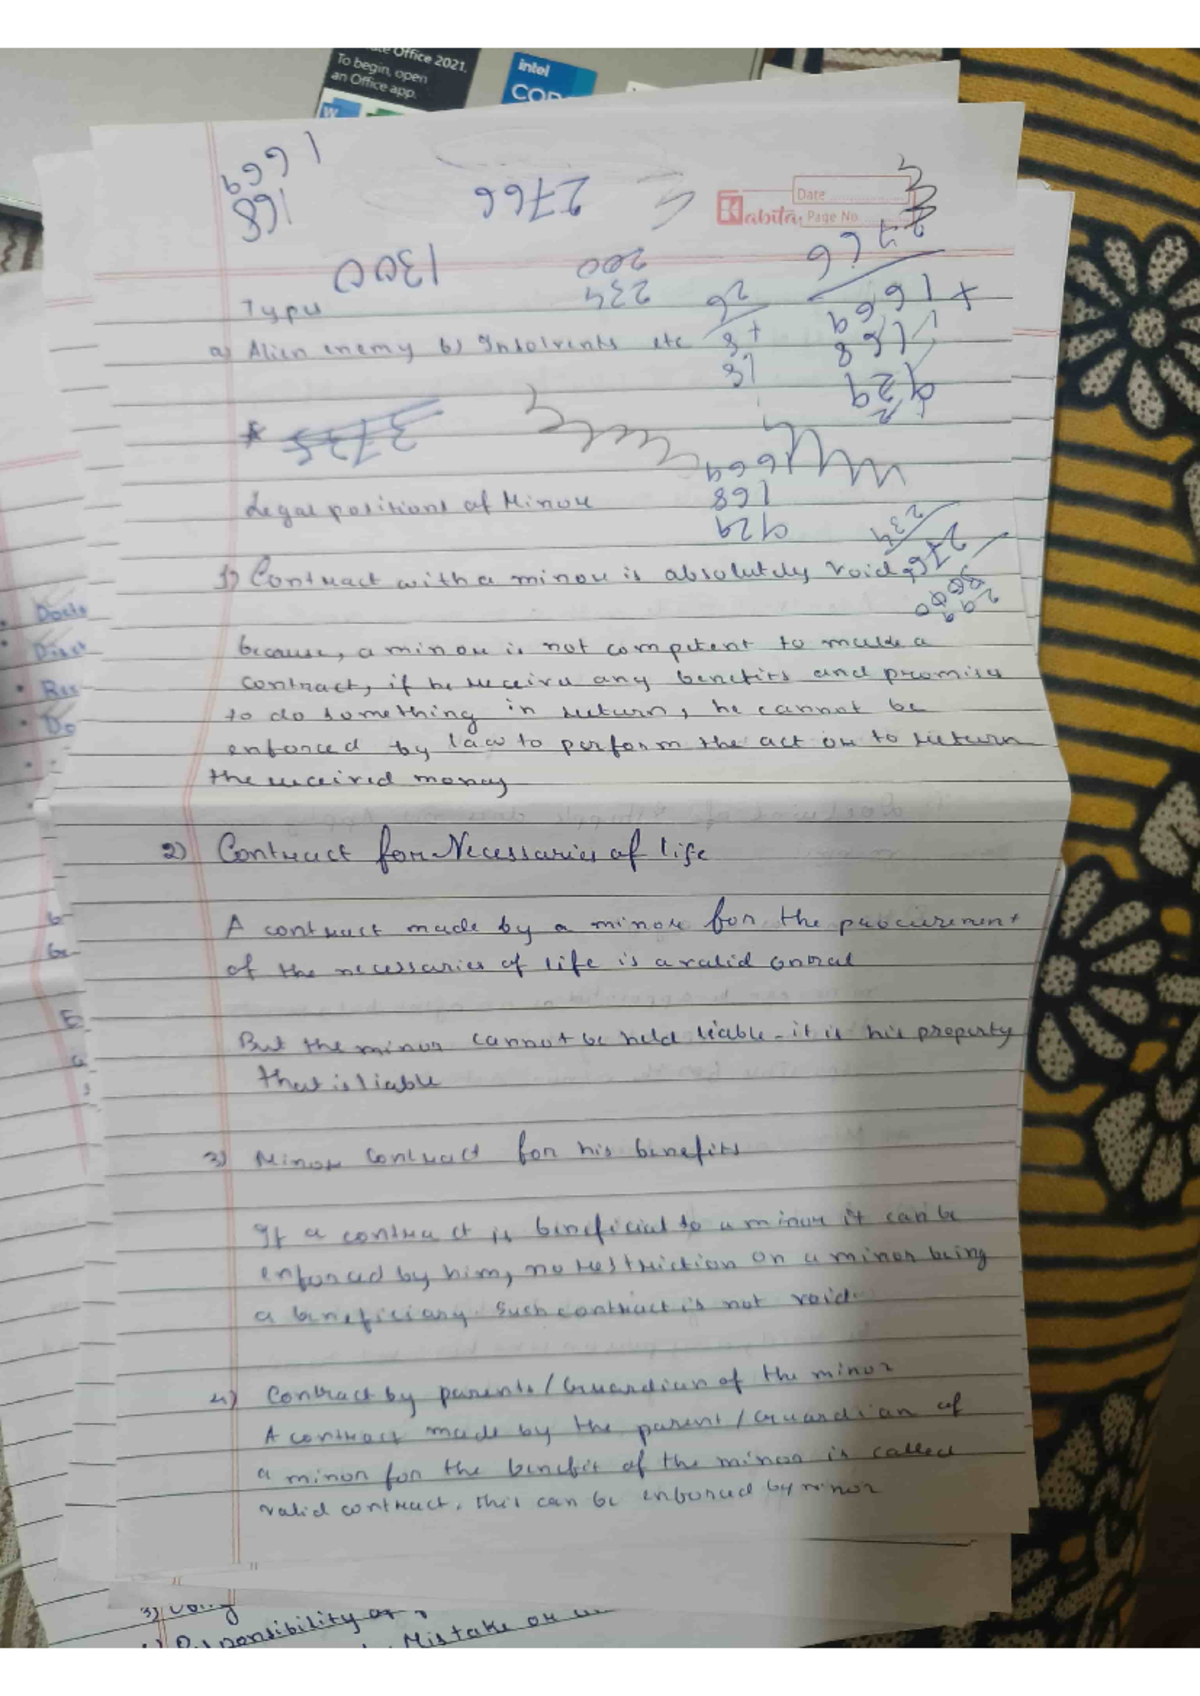 Office 2021.
To begin, open
an Office app.
intel
COR
W
Kabita
Date
Page No.
1669
168
2766
1300
200
234
Types
a) Alien enemy b) Insolvents etc
26
+8
18
2766
1669
168
929
+
3735
1669
168
929
234
276
Legal positions of Minor
1) Contract with a minor is absolutely void,
because, a minor is not competent to make a
contract, if he receives any benefits and promises
to do something in return, he cannot be
enforced by law to perform the act or to return
the received money
2) Contract for Necessaries of life
A contract made by a minor for the procurement
of the necessaries of life is a valid
But the minor cannot be held liable - it is his property
that is liable
3) Minor contract for his benefits
If a contract is beneficial to a minor it can be
enforced by him, no restriction on a minor being
a beneficiary. Such contract is not void.
4) Contract by parents/Guardian of the minor
A contract made by the parent/Guardian of
a minor for the benefit of the minor is called
valid contract. this can be enforced by minor
3)
Responsibility or
Mistake or